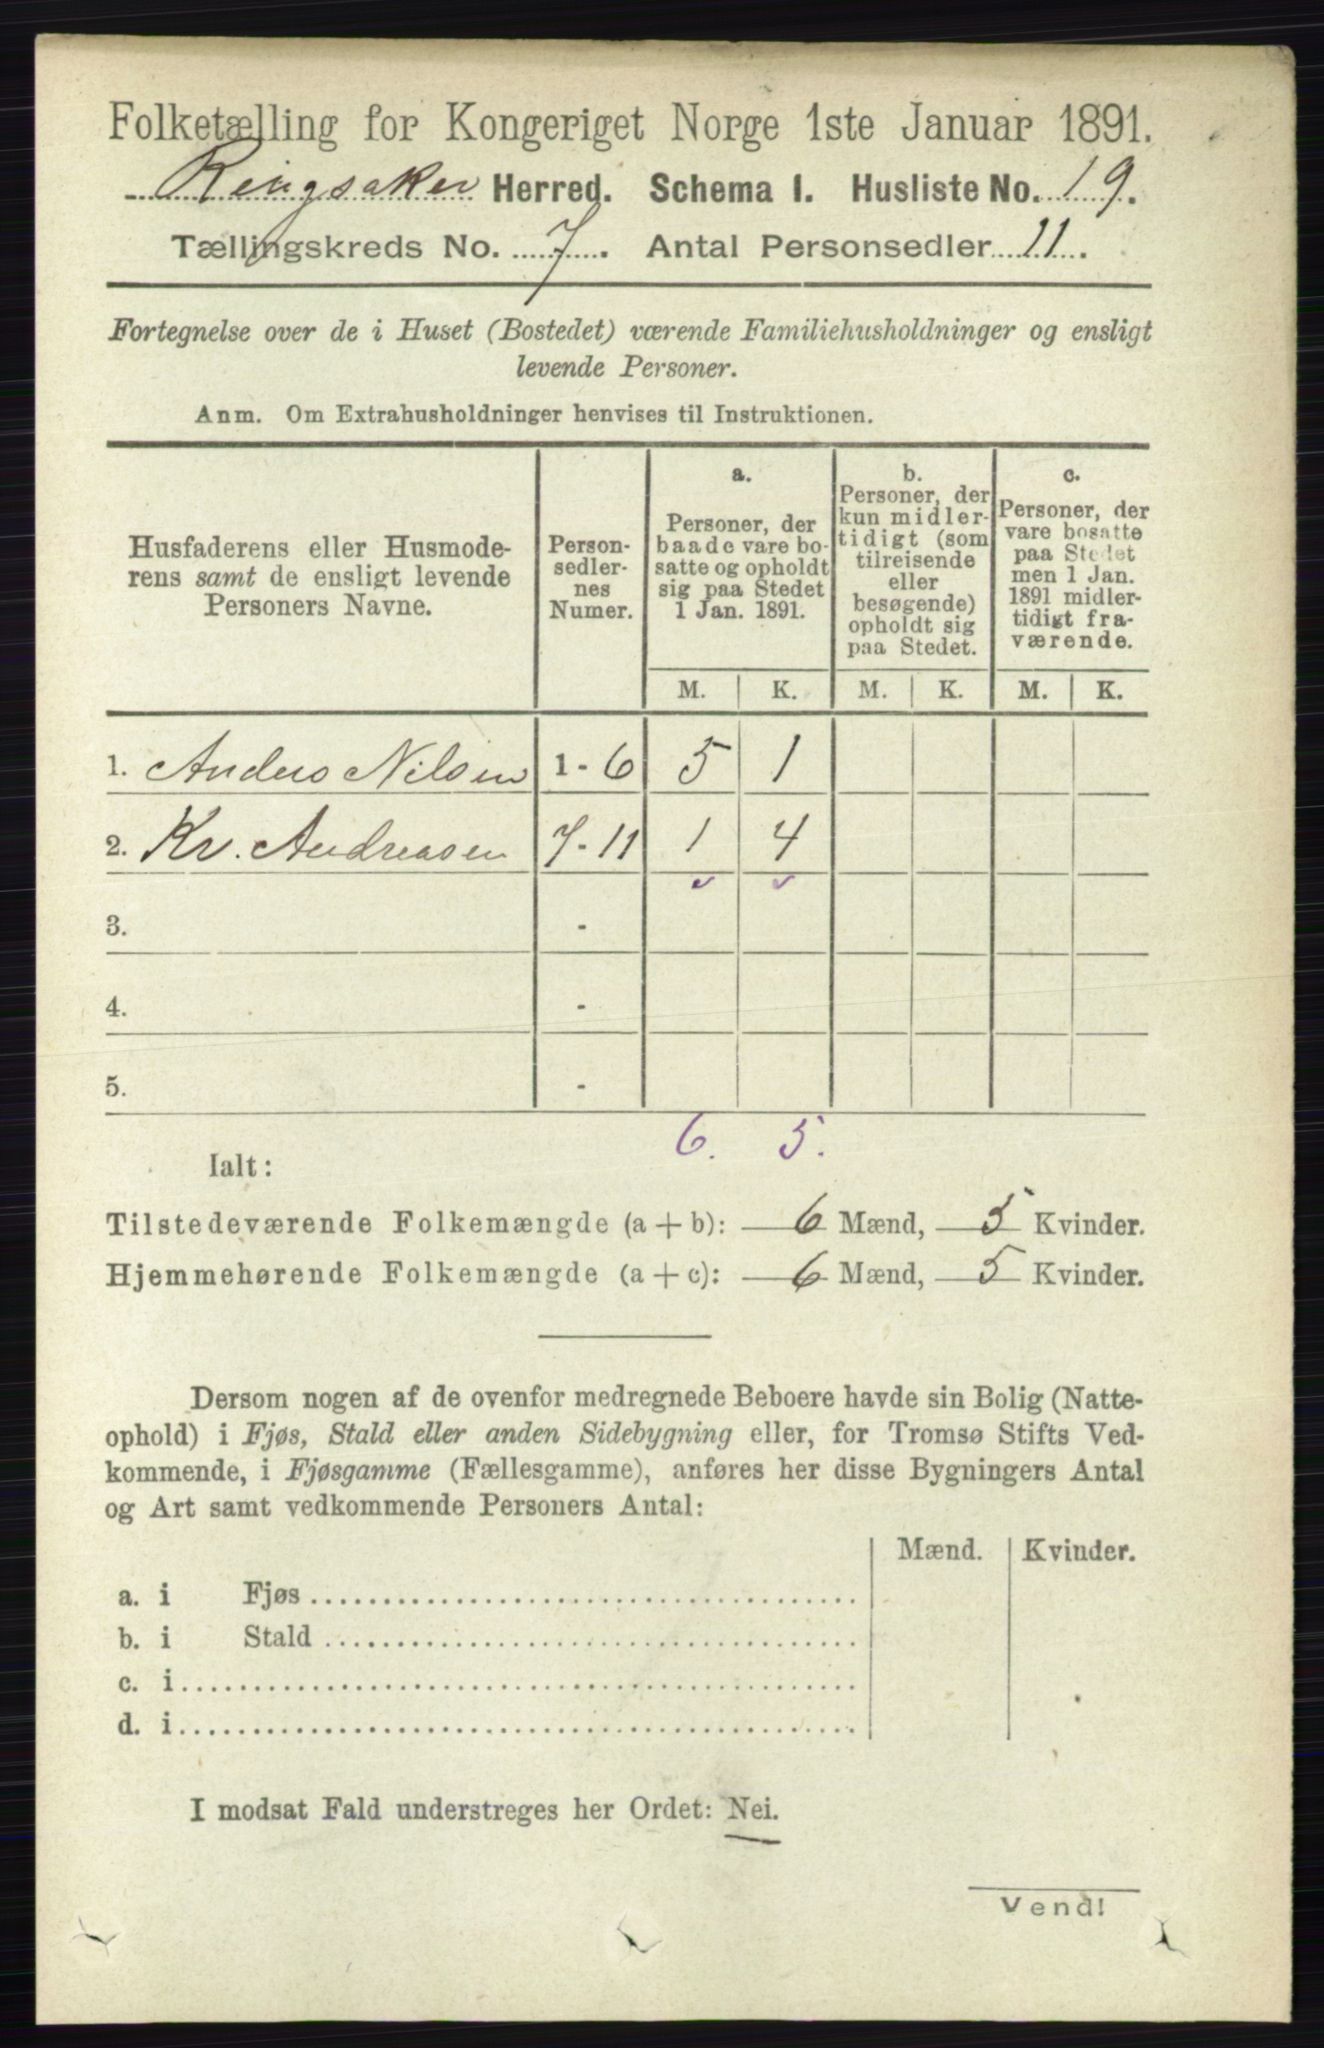 Folketælling for Kongeriget Norge 1ste Januar 1891.
Ringsaker Herred. Schema I. Husliste No. 19.
Tællingskreds No. 7. Antal Personsedler 11.
Fortegnelse over de i Huset (Bostedet) værende Familiehusholdninger og ensligt
levende Personer.
Anm. Om Extrahusholdninger henvises til Instruktionen.
Husfaderens eller Husmode-
rens samt de ensligt levende
Personers Navne.
Person-
sedler-
nes
Numer.
a.
Personer, der
baade vare bo-
satte og opholdt
sig paa Stedet
1 Jan. 1891.
b.
Personer, der
kun midler-
tidigt (som
tilreisende
eller
besøgende)
opholdt sig
paa Stedet.
c.
Personer, der
vare bosatte
paa Stedet
men 1 Jan.
1891 midler-
tidigt fra-
værende.
M. K. M. K. M. K.
1. Anders Nilsen 1 - 6 5 1
2. Kr. Andreasen 7 - 11 1 4
3. -
4. -
5. -
6. 5.
Ialt:
Tilstedeværende Folkemængde (a + b): 6 Mænd, 5 Kvinder.
Hjemmehørende Folkemængde (a + c): 6 Mænd, 5 Kvinder.
Dersom nogen af de ovenfor medregnede Beboere havde sin Bolig (Natte-
ophold) i Fjøs, Stald eller anden Sidebygning eller, for Tromsø Stifts Ved-
kommende, i Fjøsgamme (Fællesgamme), anføres her disse Bygningers Antal
og Art samt vedkommende Personers Antal:
Mænd. Kvinder.
a. i Fjøs
b. i Stald
c. i
d. i
I modsat Fald understreges her Ordet: Nei.
Vend!